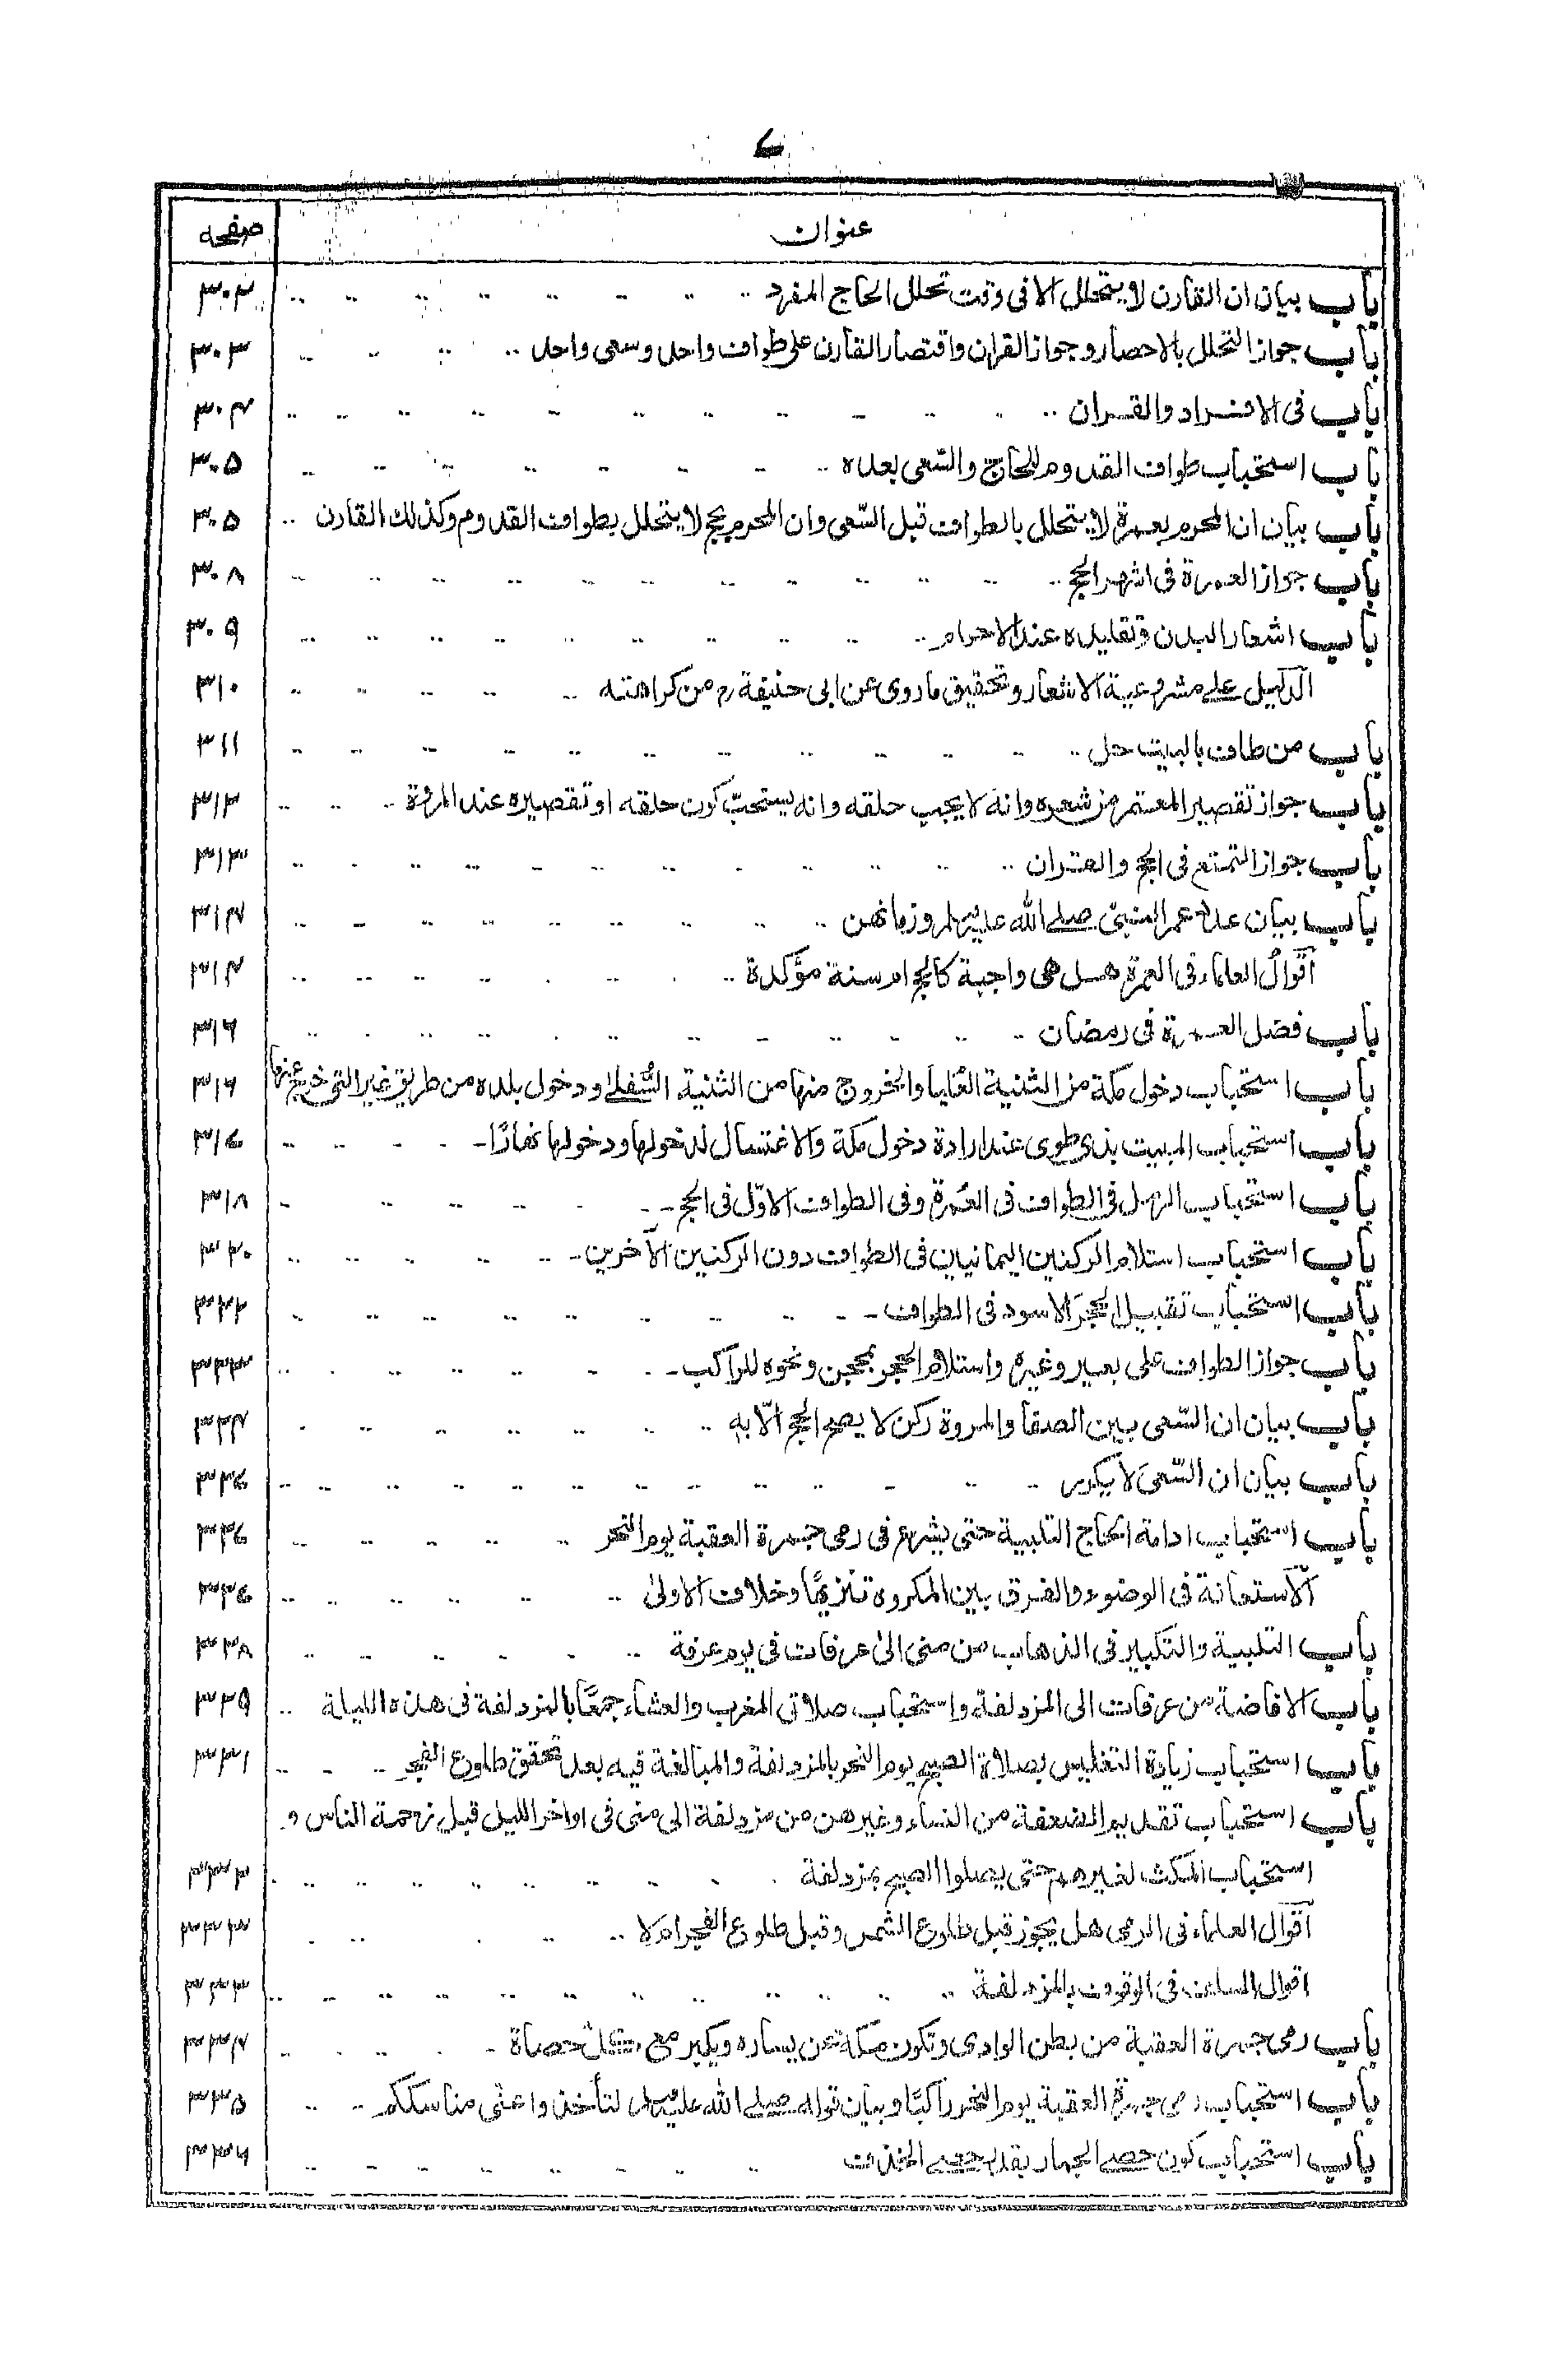 ۷
عنوان صفحه
باب بيان ان القارن لا يتحلل الا فى وقت تحلل الحاج المفرد ۳۰۲
باب جواز التحلل بالاحصار وجواز القران واقتصار القارن على طواف واحد وسعى واحد ۳۰۳
باب فى الافراد والقران ۳۰۴
باب استحباب طواف القدوم للحاج والسّعى بعده ۳۰۵
باب بيان ان المحرم بعمرة لا يتحلل بالطواف قبل السّعى وان المحرم بحج لا يتحلل بطواف القدوم وكذلك القارن ۳۰۵
باب جواز العمرة فى اشهر الحج ۳۰۸
باب اشعار البدن وتقليده عند الاحرام ۳۰۹
الدليل على مشروعية الاشعار وتحقيق ما روى عن ابى حنيفة رح من كراهته ۳۱۰
باب من طاف بالبيت حل ۳۱۱
باب جواز تقصير المعتمر من شعره وانه لا يجب حلقه وانه يستحبّ كون حلقه او تقصيره عند المروة ۳۱۲
باب جواز التمتع فى الحج والقران ۳۱۳
باب بيان عدد عمر النبى صلى الله عليه وسلم وزمانهن ۳۱۴
اقوال العلماء فى العمرة هل هى واجبة كالحج ام سنة مؤكدة ۳۱۴
باب فضل العمرة فى رمضان ۳۱۶
باب استحباب دخول مكة من الثنية العُليا والخروج منها من الثنية السُّفلى ودخول بلده من طريق غير التى خرج عنها ۳۱۶
باب استحباب المبيت بذى طوى عند ارادة دخول مكة والاغتسال لدخولها ودخولها نهارًا ۳۱۷
باب استحباب الرمل فى الطواف فى العُمرة وفى الطواف الاوّل فى الحج ۳۱۸
باب استحباب استلام الركنين اليمانيين فى الطواف دون الركنين الآخرين ۳۲۰
باب استحباب تقبيل الحجر الاسود فى الطواف ۳۲۲
باب جواز الطواف على بعير وغيره واستلام الحجر بمحجن ونحوه للراكب ۳۲۳
باب بيان ان السّعى بين الصفا والمروة ركن لا يصح الحج الّا به ۳۲۴
باب بيان ان السّعى لا يكرر ۳۲۷
باب استحباب ادامة الحاج التلبية حتى يشرع فى رمى جمرة العقبة يوم النحر ۳۲۷
الاستعانة فى الوضوء والفرق بين المكروه تنزيهًا وخلاف الاولىٰ ۳۲۷
باب التلبية والتكبير فى الذهاب من منى الىٰ عرفات فى يوم عرفة ۳۲۸
باب الافاضة من عرفات الى المزدلفة واستحباب صلاتى المغرب والعشاء جمعًا بالمزدلفة فى هذه الليلة ۳۲۹
باب استحباب زيادة التغليس بصلاة الصبح يوم النحر بالمزدلفة والمبالغة فيه بعد تحقق طلوع الفجر ۳۳۱
باب استحباب تقديم الضعفة من النساء وغيرهن من مزدلفة الى منى فى اواخر الليل قبل زحمة الناس و
استحباب المكث لغيرهم حتى يصلوا الصبح بمزدلفة ۳۳۲
اقوال العلماء فى الرمى هل يجوز قبل طلوع الشمس وقبل طلوع الفجر ام لا ۳۳۳
اقوال السلف فى الوقوف بالمزدلفة ۳۳۳
باب رمى جمرة العقبة من بطن الوادى وتكون مكة عن يساره ويكبر مع كل حصاة ۳۳۴
باب استحباب رمى جمرة العقبة يوم النحر راكبًا وبيان قوله صلى الله عليه وسلم لتأخذوا عنى مناسككم ۳۳۵
باب استحباب كون حصى الجمار بقدر حصى الخذف ۳۳۶